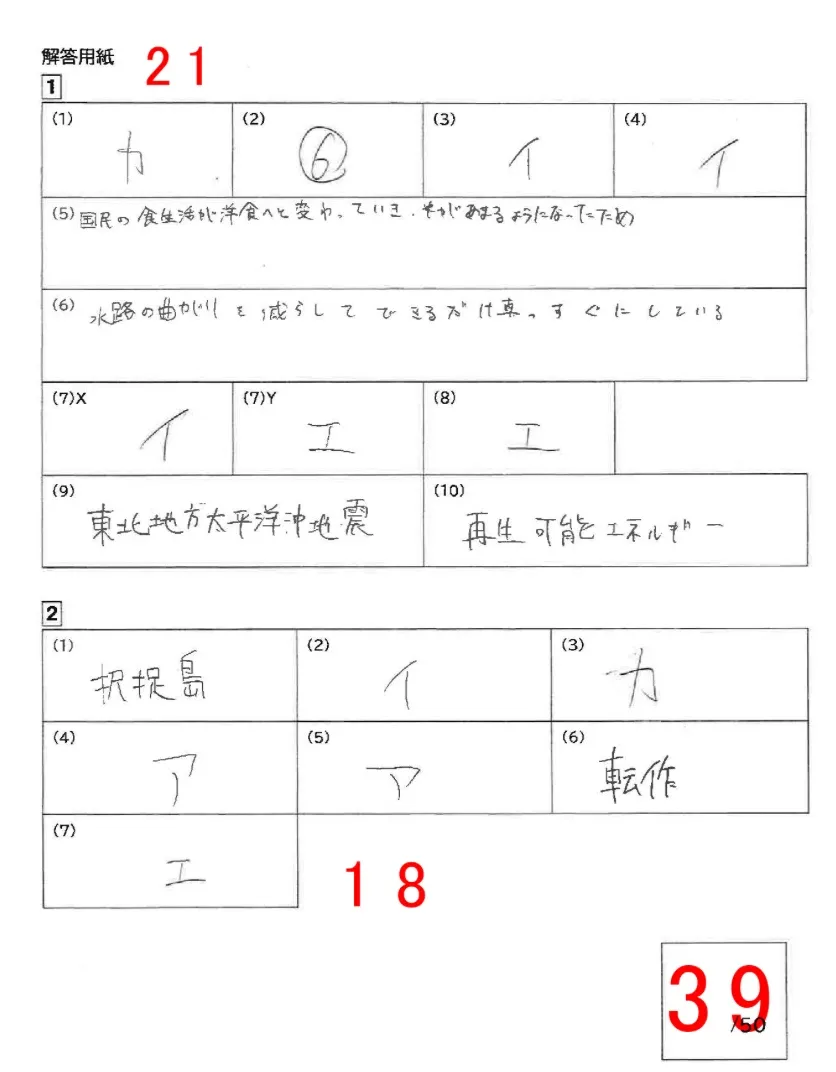 解答用紙 21
1
(1) カ (2) ⑥ (3) イ (4) イ
(5) 国民の食生活が洋食へと変わっていき、米があまるようになったため
(6) 水路の曲がりを減らしてできるだけ真っすぐにしている
(7)X イ (7)Y エ (8) エ
(9) 東北地方太平洋沖地震 (10) 再生可能エネルギー
2
(1) 択捉島 (2) イ (3) カ
(4) ア (5) ア (6) 転作
(7) エ
18
39
/50